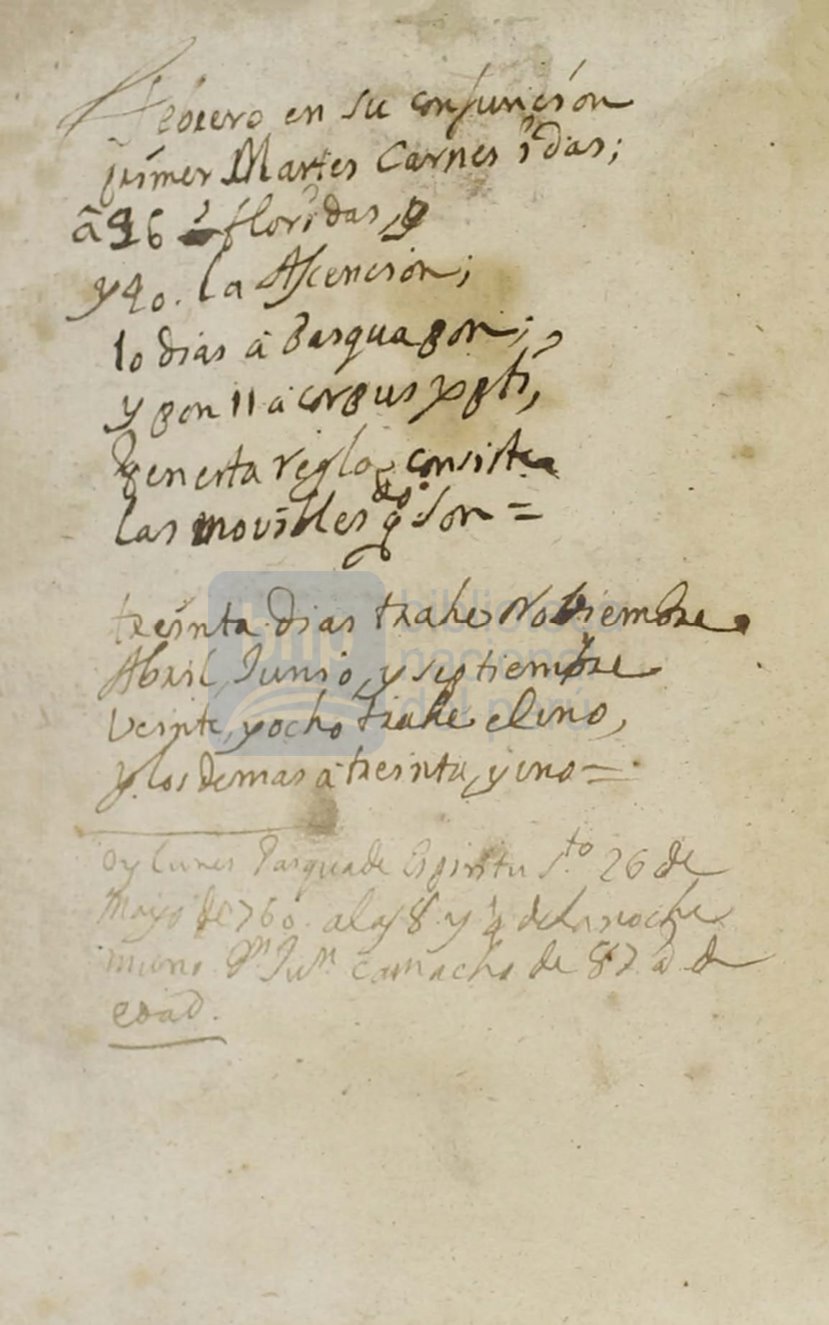 Febrero en su conjuncion
primer Martes Carnes idas;
à 46 floridas,
y 40. la Ascencion;
10 dias à Pasqua son;
y son 11 à corpus xpti,
Qe en esta regla consiste
las movibles q.e son =
treinta dias trahe Noviembre
Abril, Junio, y septiembre
Veinte, y ocho trahe el uno,
y los demas à treinta, y uno =.
Oy lunes Pasqua de Espiritu S.to 26 de
Mayo de 760. a las 8 y 1/4 de la noche
murio D.n Ju.n camacho de 87 a. de
edad.
biblioteca
nacional
del perú